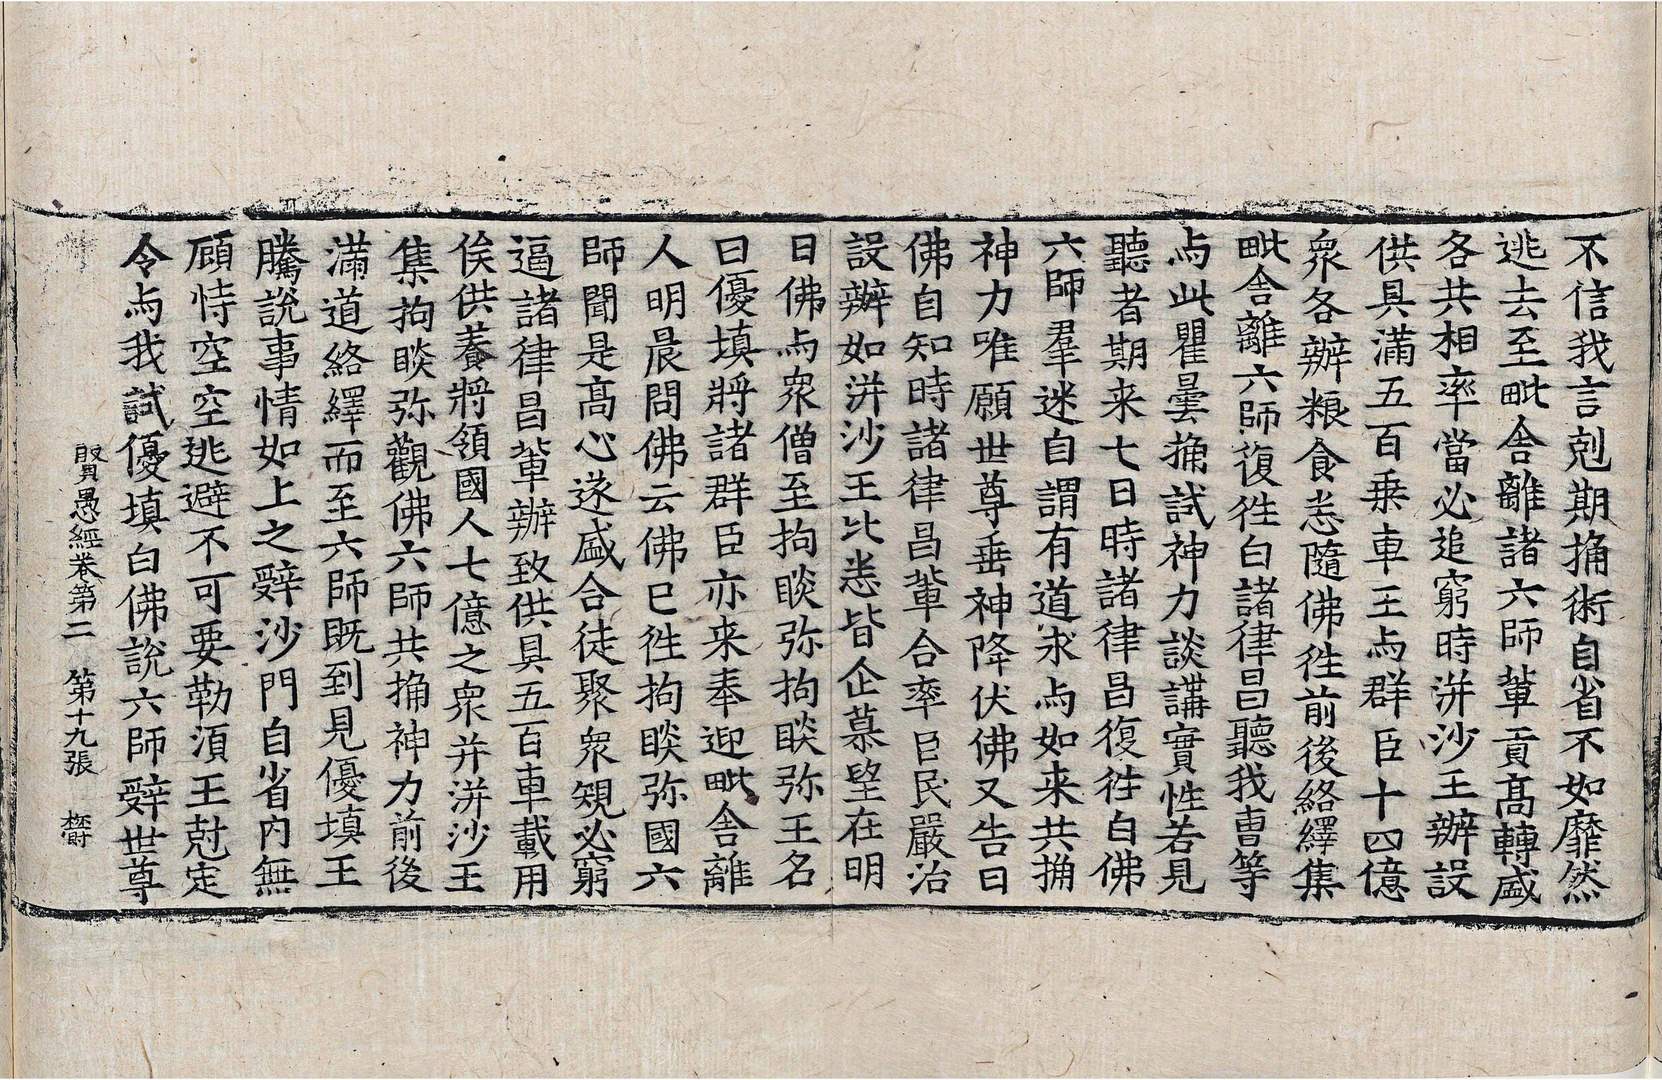 不信我言剋期捔術自省不如靡然
逃去至毗舍離諸六師輩貢高轉盛
各共相率當必追窮時洴沙王辦設
供具滿五百乗車王与群臣十四億
衆各辦粮食悉隨佛徃前後絡繹集
毗舍離六師復徃白諸律昌聽我曺等
与此瞿曇捔試神力談講實性若見
聽者期来七日時諸律昌復徃白佛
六師羣迷自謂有道求与如来共捔
神力唯願世尊垂神降伏佛又告曰
佛自知時諸律昌輩合率臣民嚴治
設辦如洴沙王比悉皆企慕望在明
日佛与衆僧至拘睒弥拘睒弥王名
曰優填將諸群臣亦来奉迎毗舍離
人明晨問佛云佛已徃拘睒弥國六
師聞是髙心遂盛合徒聚衆䂓必窮
逼諸律昌輩辦致供具五百車載用
俟供養將領國人七億之衆并洴沙王
集拘睒弥觀佛六師共捔神力前後
滿道絡繹而至六師既到見優填王
騰說事情如上之辭沙門自省内無
顧恃空空逃避不可要勒湏王尅定
令与我試優填白佛說六師辭世尊
賢愚經卷第二　第十九張　欝